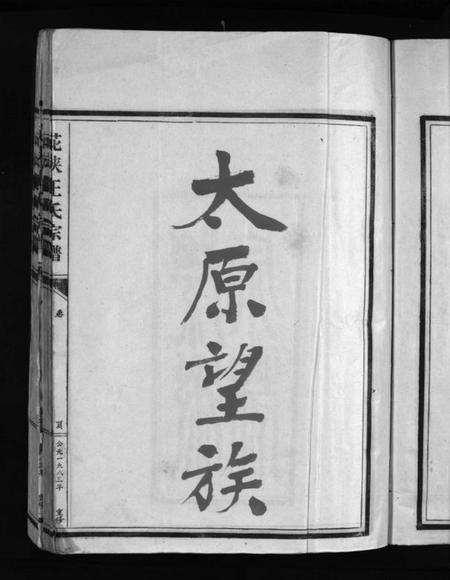 太原望族
花峡王氏宗譜
卷
頁
公元一九八三年
重修